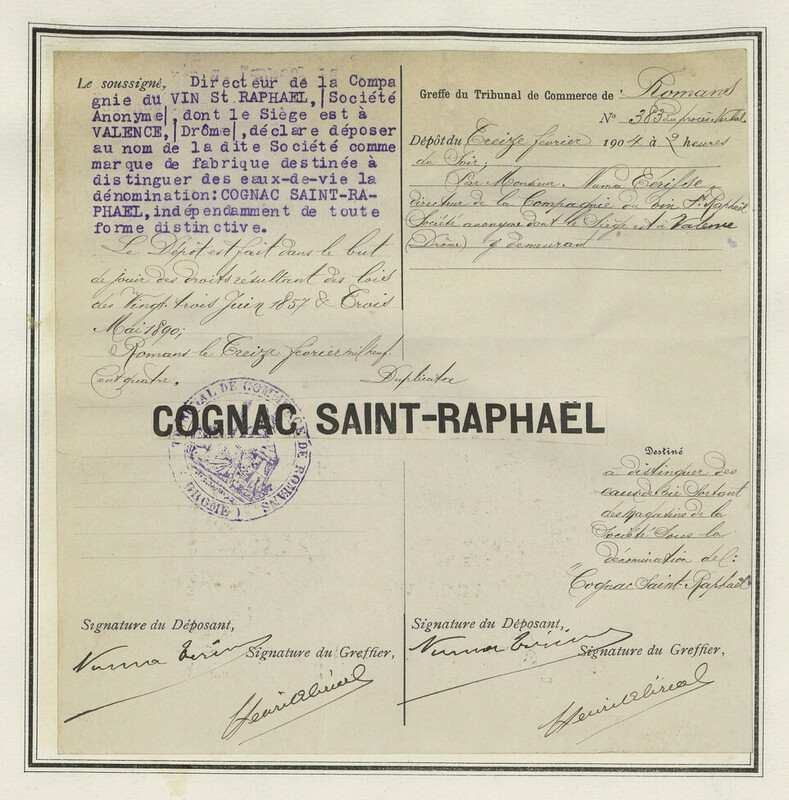 Le soussigné, Directeur de la Compa
gnie du VIN St RAPHAEL,|Société
Anonyme|,dont le Siège est à
VALENCE,|Drôme|,déclare déposer
au nom de la dite Société comme
marque de fabrique destinée à
distinguer des eaux-de-vie la
dénomination:COGNAC SAINT-RA-
PHAEL,indépendamment de toute
forme distinctive.
Le Dépôt est fait dans le but
de jouir des droits résultant des lois
des Vingt trois Juin 1857 & Trois
Mai 1890;
Romans le Treize février mil neuf
Cent quatre.
Greffe du Tribunal de Commerce de Romans
N° 383 du procès Verbal
Dépôt du Treize février 1904 à 2 heures
du Soir;
Par Monsieur Numa
directeur de la Compagnie du Vin St Raphaël
Société anonyme dont le Siège est à Valence
(Drôme) y demeurant
Duplicata
COGNAC SAINT-RAPHAËL
TRIBUNAL DE COMMERCE DE ROMANS
(DROME)
Destiné
à distinguer des
eaux de Vie Sortant
des Magasins de la
Société Sous la
dénomination de:
"Cognac Saint-Raphaël"
Signature du Déposant,
Numa
Signature du Greffier,
Signature du Déposant,
Numa
Signature du Greffier,